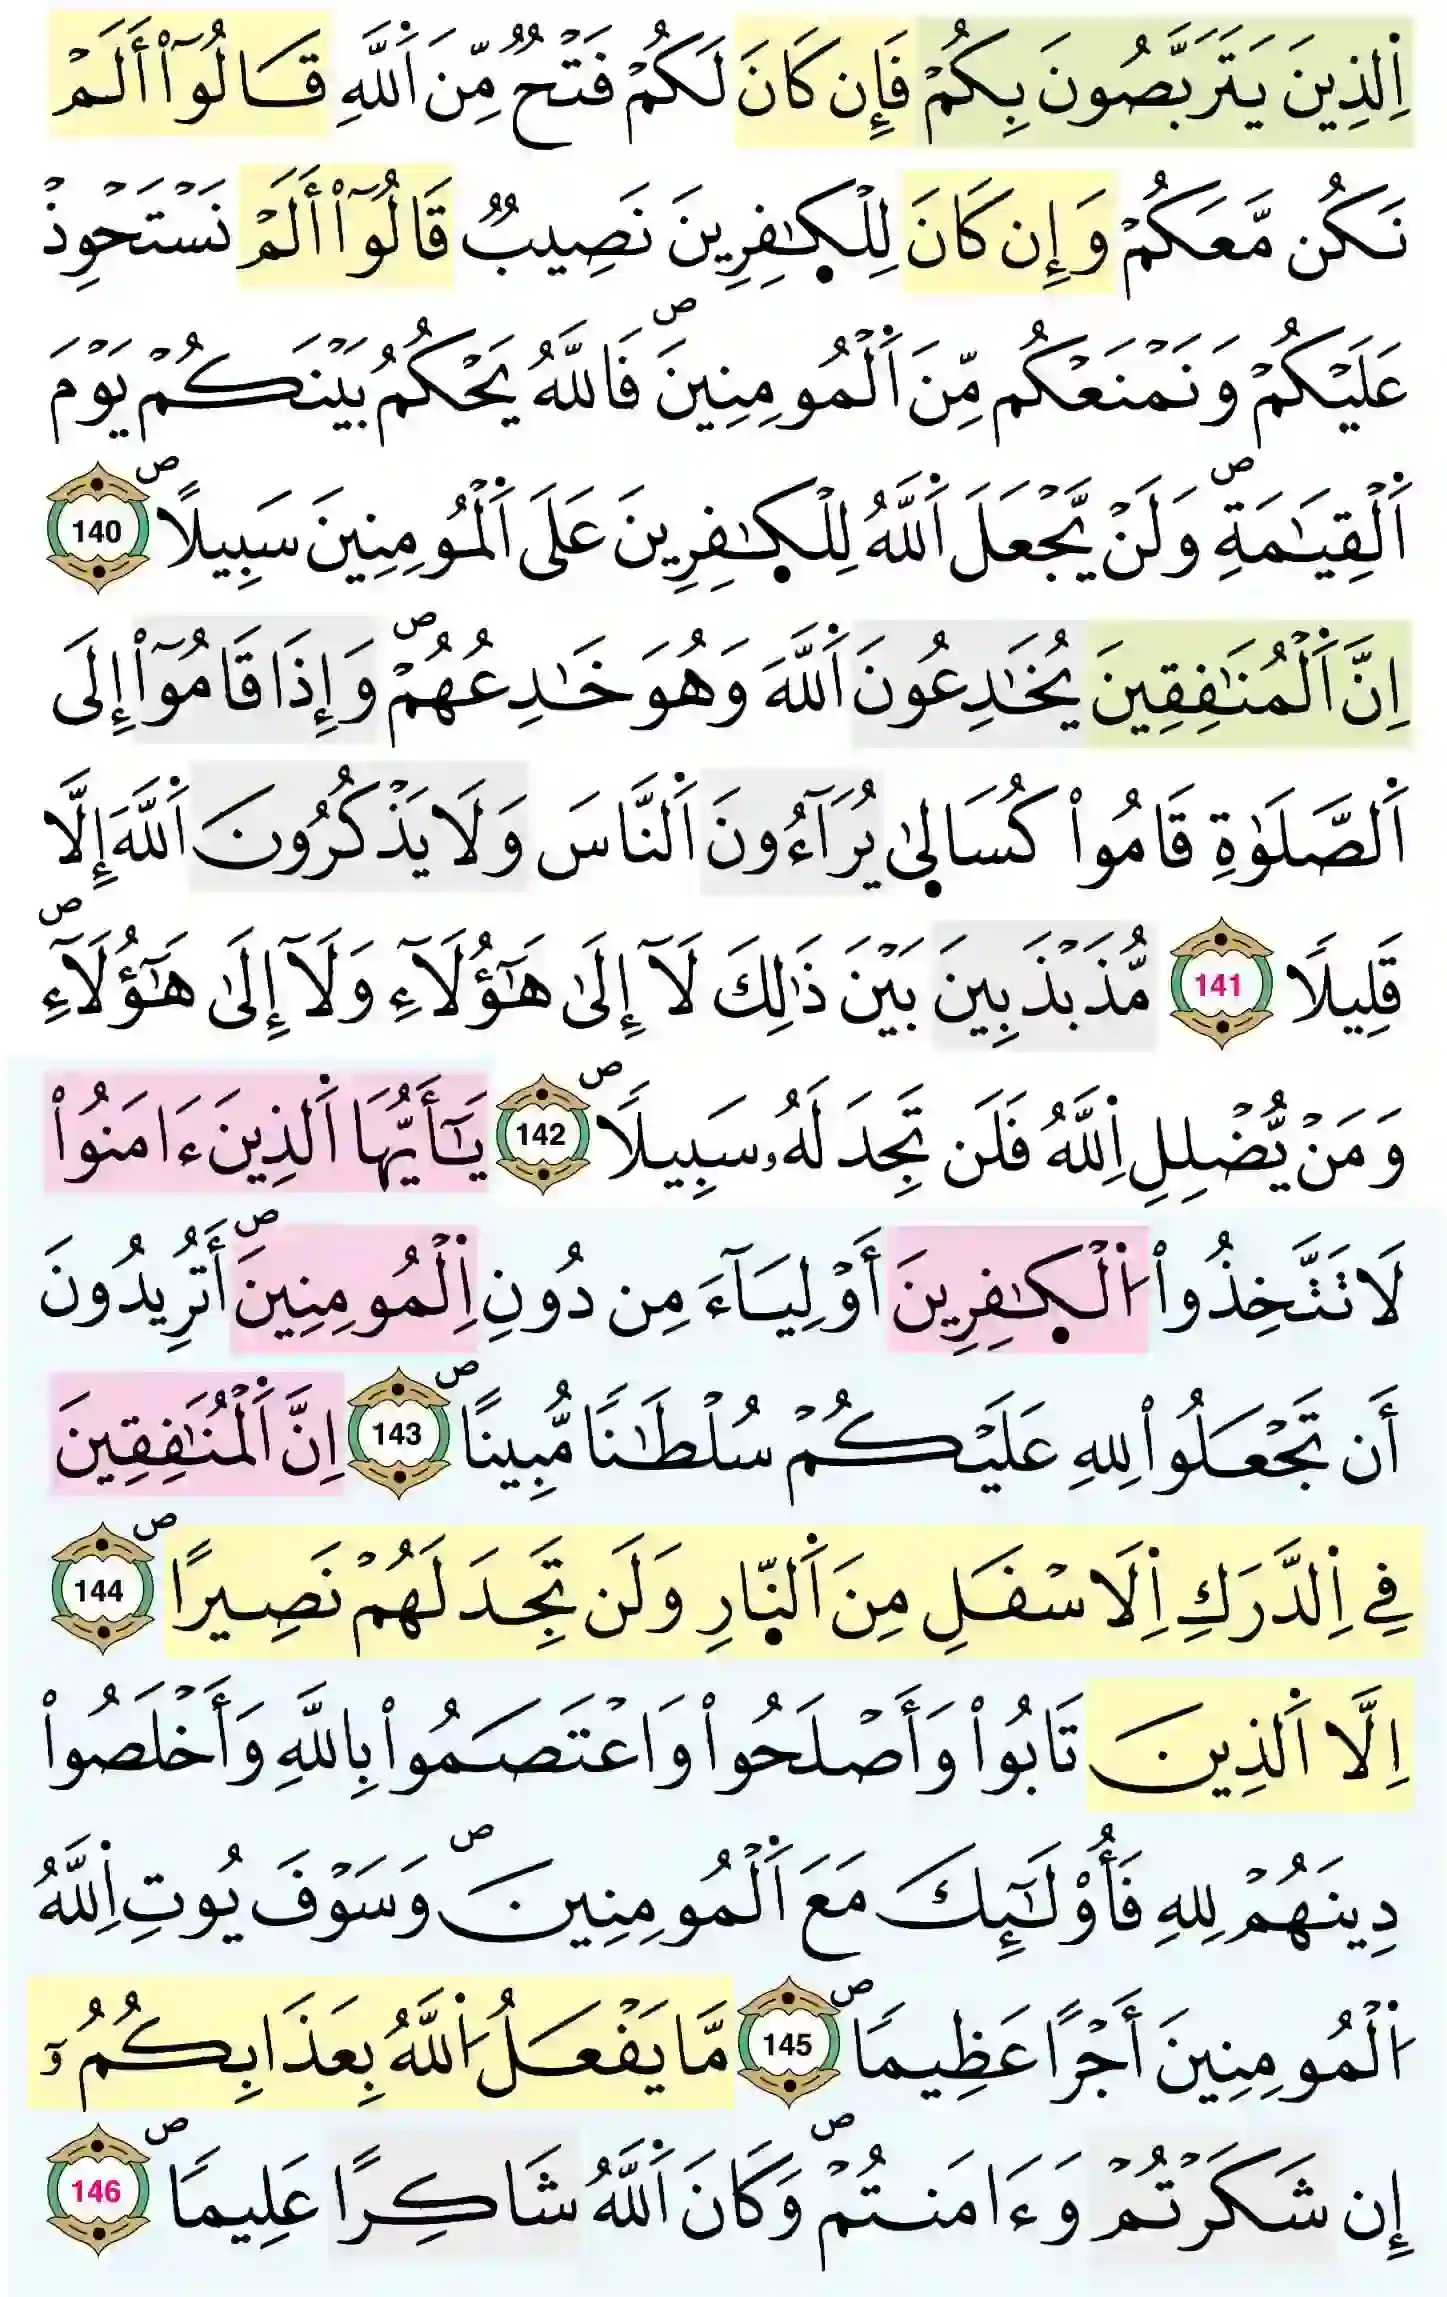 اِ۬لذِينَ يَتَرَبَّصُونَ بِكُمْ فَإِن كَانَ لَكُمْ فَتْحٞ مِّنَ اَ۬للَّهِ قَالُوٓاْ أَلَمْ
نَكُن مَّعَكُمْ وَإِن كَانَ لِلْكٜ۪فِرِينَ نَصِيبٞ قَالُوٓاْ أَلَمْ نَسْتَحْوِذْ
عَلَيْكُمْ وَنَمْنَعْكُم مِّنَ اَ۬لْمُومِنِينَۖ فَاللَّهُ يَحْكُمُ بَيْنَكُمْ يَوْمَ
اَ۬لْقِيَٰمَةِۖ وَلَنْ يَّجْعَلَ اَ۬للَّهُ لِلْكٜ۪فِرِينَ عَلَى اَ۬لْمُومِنِينَ سَبِيلًاۖ 140
اِنَّ اَ۬لْمُنَٰفِقِينَ يُخَٰدِعُونَ اَ۬للَّهَ وَهُوَ خَٰدِعُهُمْۖ وَإِذَا قَامُوٓاْ إِلَى
اَ۬لصَّلَوٰةِ قَامُواْ كُسَالٜ۪ىٰ يُرَآءُونَ اَ۬لنَّاسَ وَلَا يَذْكُرُونَ اَ۬للَّهَ إِلَّا
قَلِيلًا 141 مُّذَبْذَبِينَ بَيْنَ ذَٰلِكَ لَآ إِلَىٰ هَٰٓؤُلَآءِ وَلَآ إِلَىٰ هَٰٓؤُلَآءِۖ
وَمَنْ يُّضْلِلِ اِ۬للَّهُ فَلَن تَجِدَ لَهُۥ سَبِيلًاۖ 142 يَٰٓأَيُّهَا اَ۬لذِينَ ءَامَنُواْ
لَا تَتَّخِذُواْ اُ۬لْكٜ۪فِرِينَ أَوْلِيَآءَ مِن دُونِ اِ۬لْمُومِنِينَۖ أَتُرِيدُونَ
أَن تَجْعَلُواْ لِلهِ عَلَيْكُمْ سُلْطَٰنًا مُّبِينًاۖ 143 اِنَّ اَ۬لْمُنَٰفِقِينَ
فِي اِ۬لدَّرَكِ اِ۬لَاسْفَلِ مِنَ اَ۬لنّٜ۪ارِ وَلَن تَجِدَ لَهُمْ نَصِيرًاۖ 144
اِلَّا اَ۬لذِينَ تَابُواْ وَأَصْلَحُواْ وَاعْتَصَمُواْ بِاللَّهِ وَأَخْلَصُواْ
دِينَهُمْ لِلهِ فَأُوْلَٰٓئِكَ مَعَ اَ۬لْمُومِنِينَۖ وَسَوْفَ يُوتِ اِ۬للَّهُ
اُ۬لْمُومِنِينَ أَجْرًا عَظِيمًاۖ 145 مَّا يَفْعَلُ اُ۬للَّهُ بِعَذَابِكُمُۥٓ
إِن شَكَرْتُمْ وَءَامَنتُمْۖ وَكَانَ اَ۬للَّهُ شَاكِرًا عَلِيمًاۖ 146